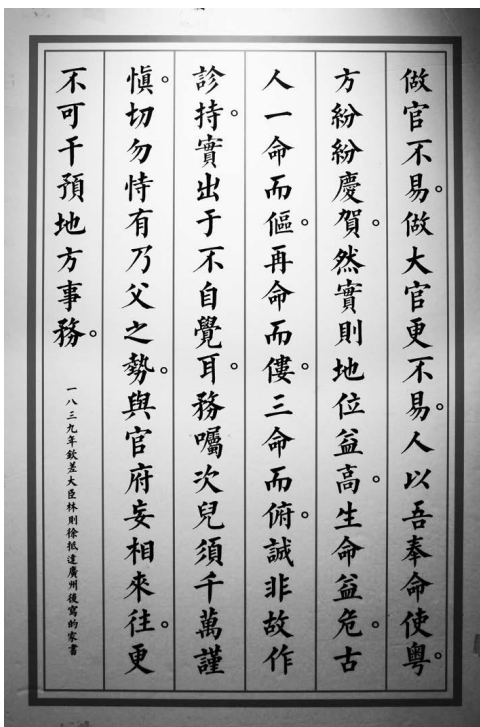 做官不易。做大官更不易。人以吾奉命使粵。
方紛紛慶賀。然實則地位益高。生命益危。古
人一命而傴。再命而僂。三命而俯。誠非故作
診持。實出于不自覺耳。務囑次兒須千萬謹
慎。切勿恃有乃父之勢。與官府妄相來往。更
不可干預地方事務。
一八三九年欽差大臣林則徐抵達廣州後寫的家書